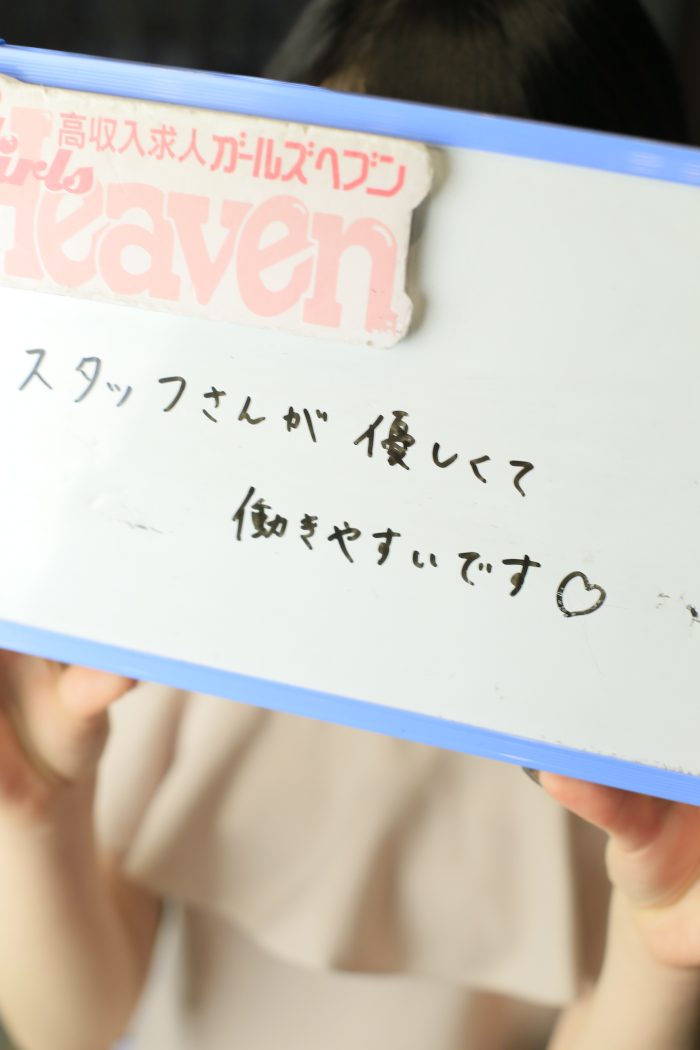 高収入求人ガールズヘブン
Girls
Heaven
スタッフさんが 優しくて
働きやすいです♡